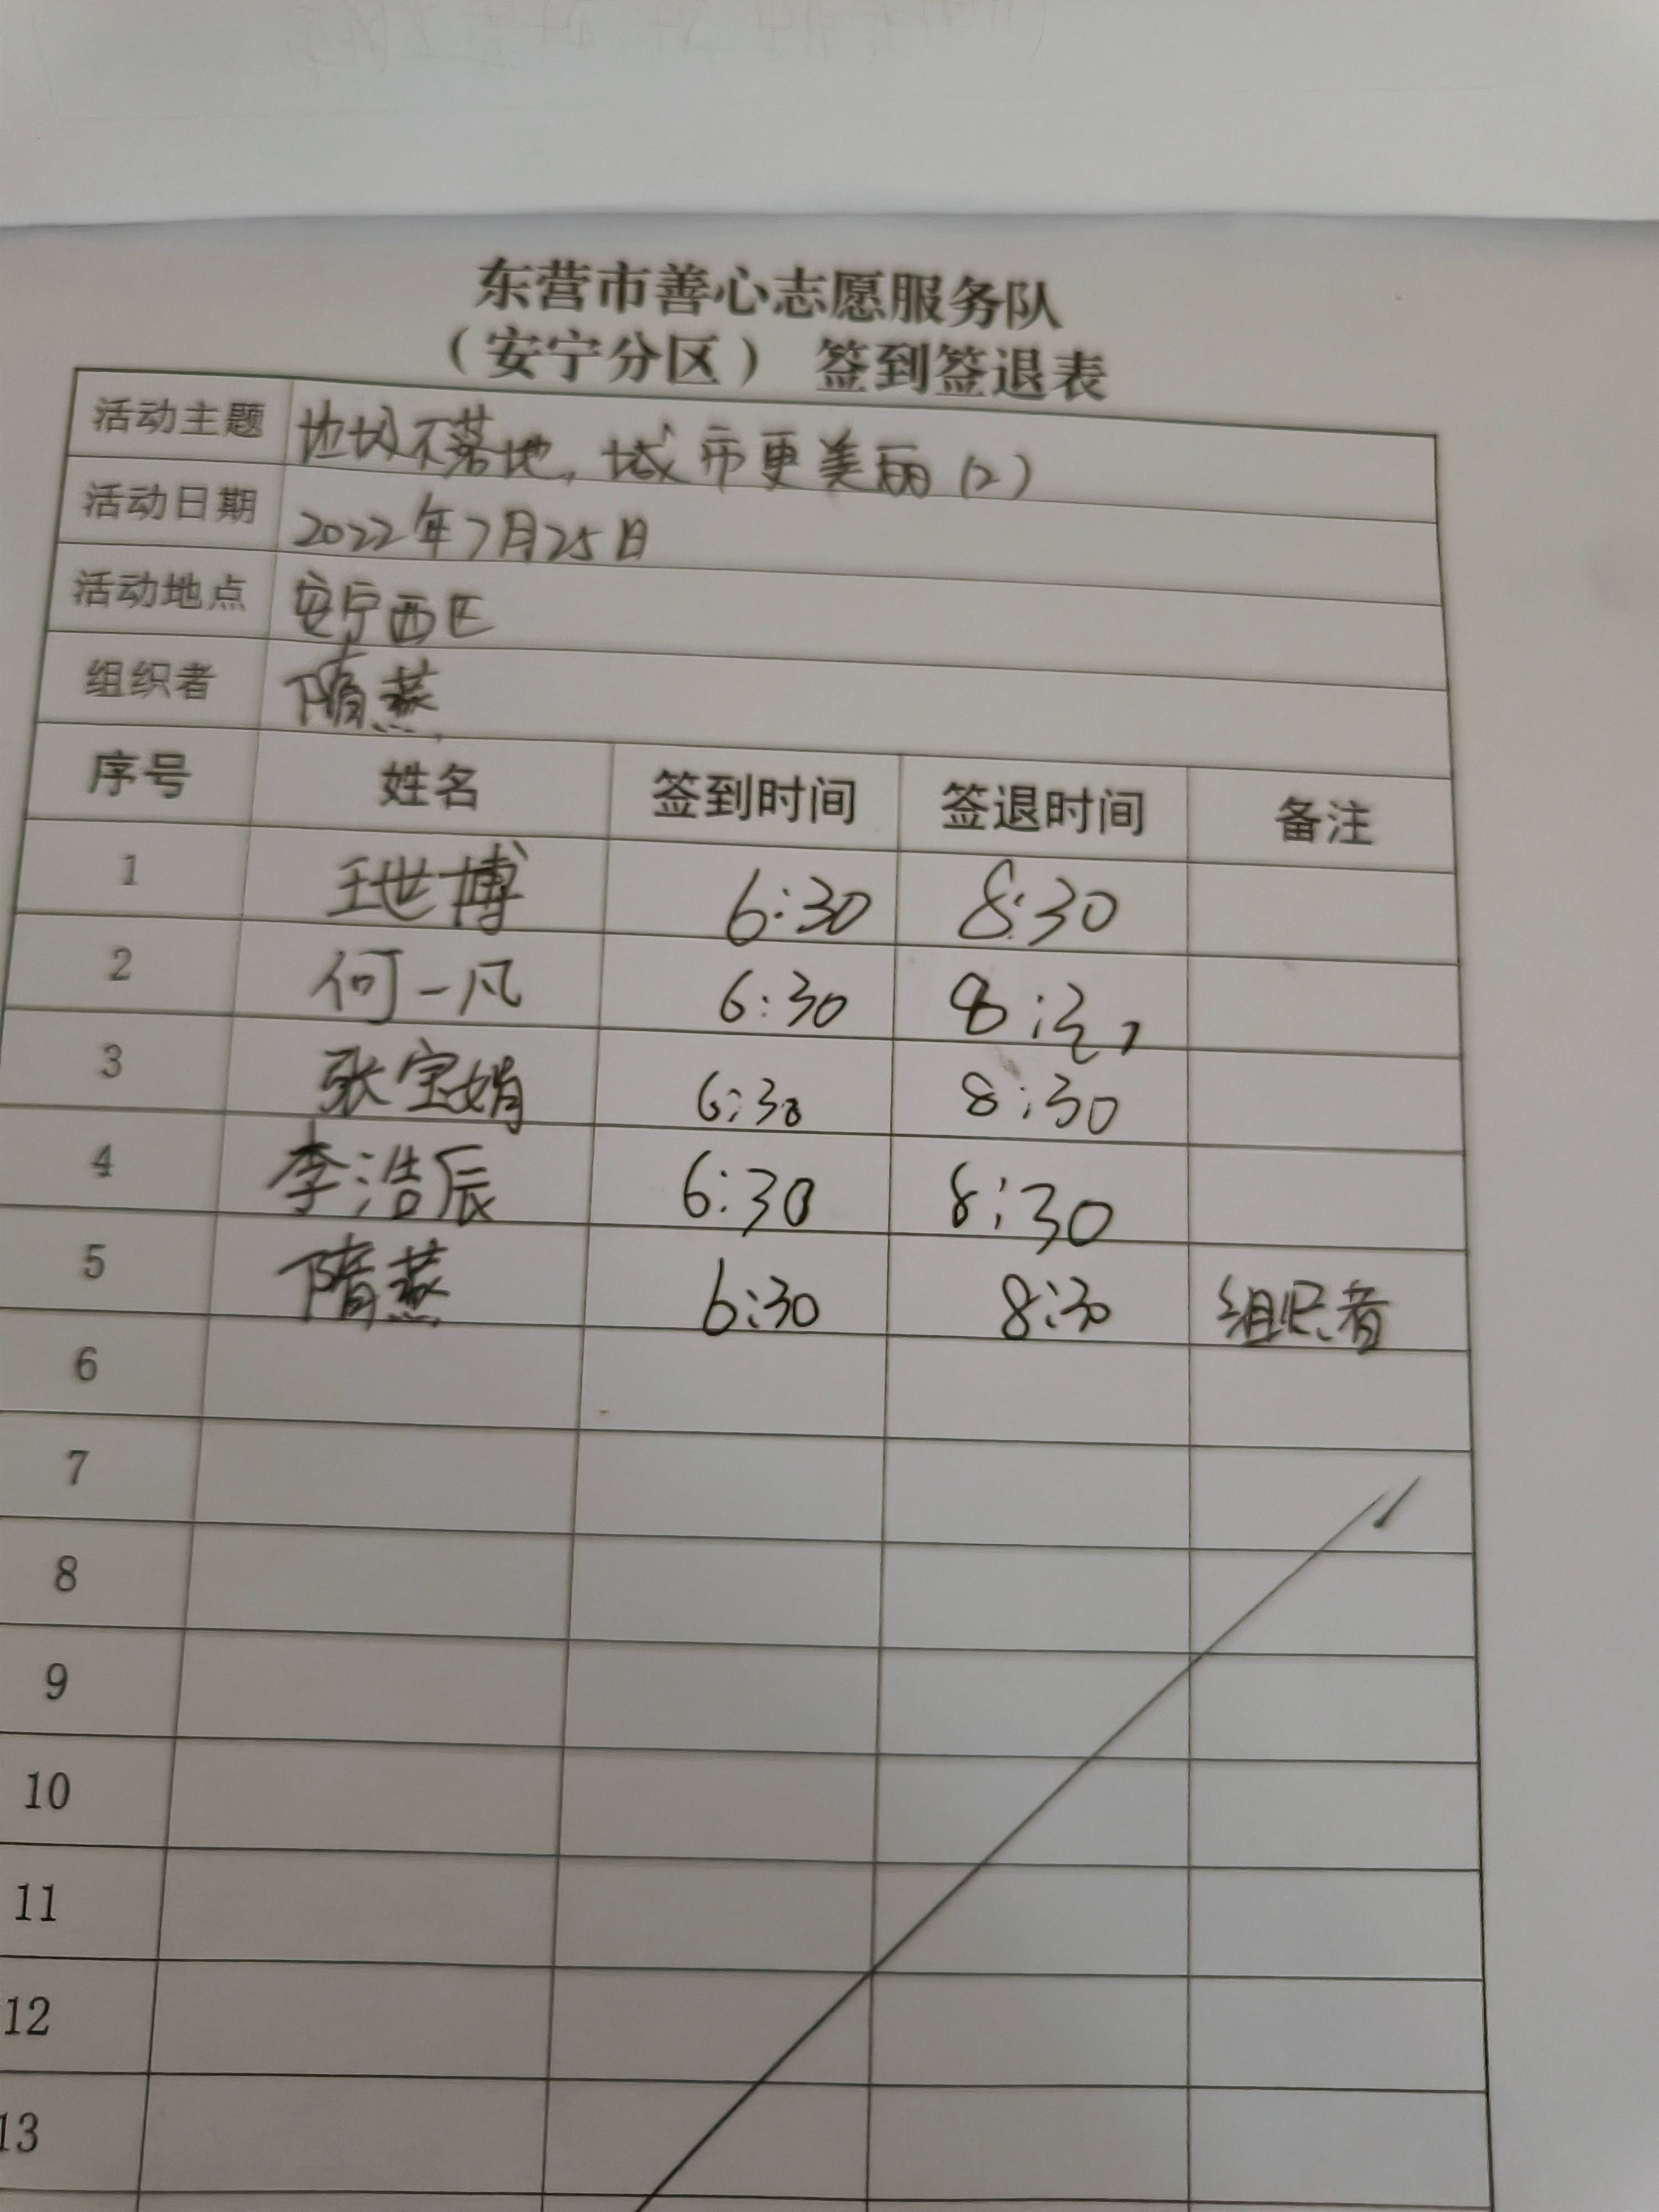 东营市善心志愿服务队
（安宁分区） 签到签退表
活动主题 垃圾不落地，城市更美丽(2)
活动日期 2022年7月25日
活动地点 安宁西区
组织者 隋燕
序号 姓名 签到时间 签退时间 备注
1 王世博 6:30 8:30
2 何一凡 6:30 8:30
3 张宝娟 6:30 8:30
4 李浩辰 6:30 8:30
5 隋燕 6:30 8:30 组织者
6
7
8
9
10
11
12
13